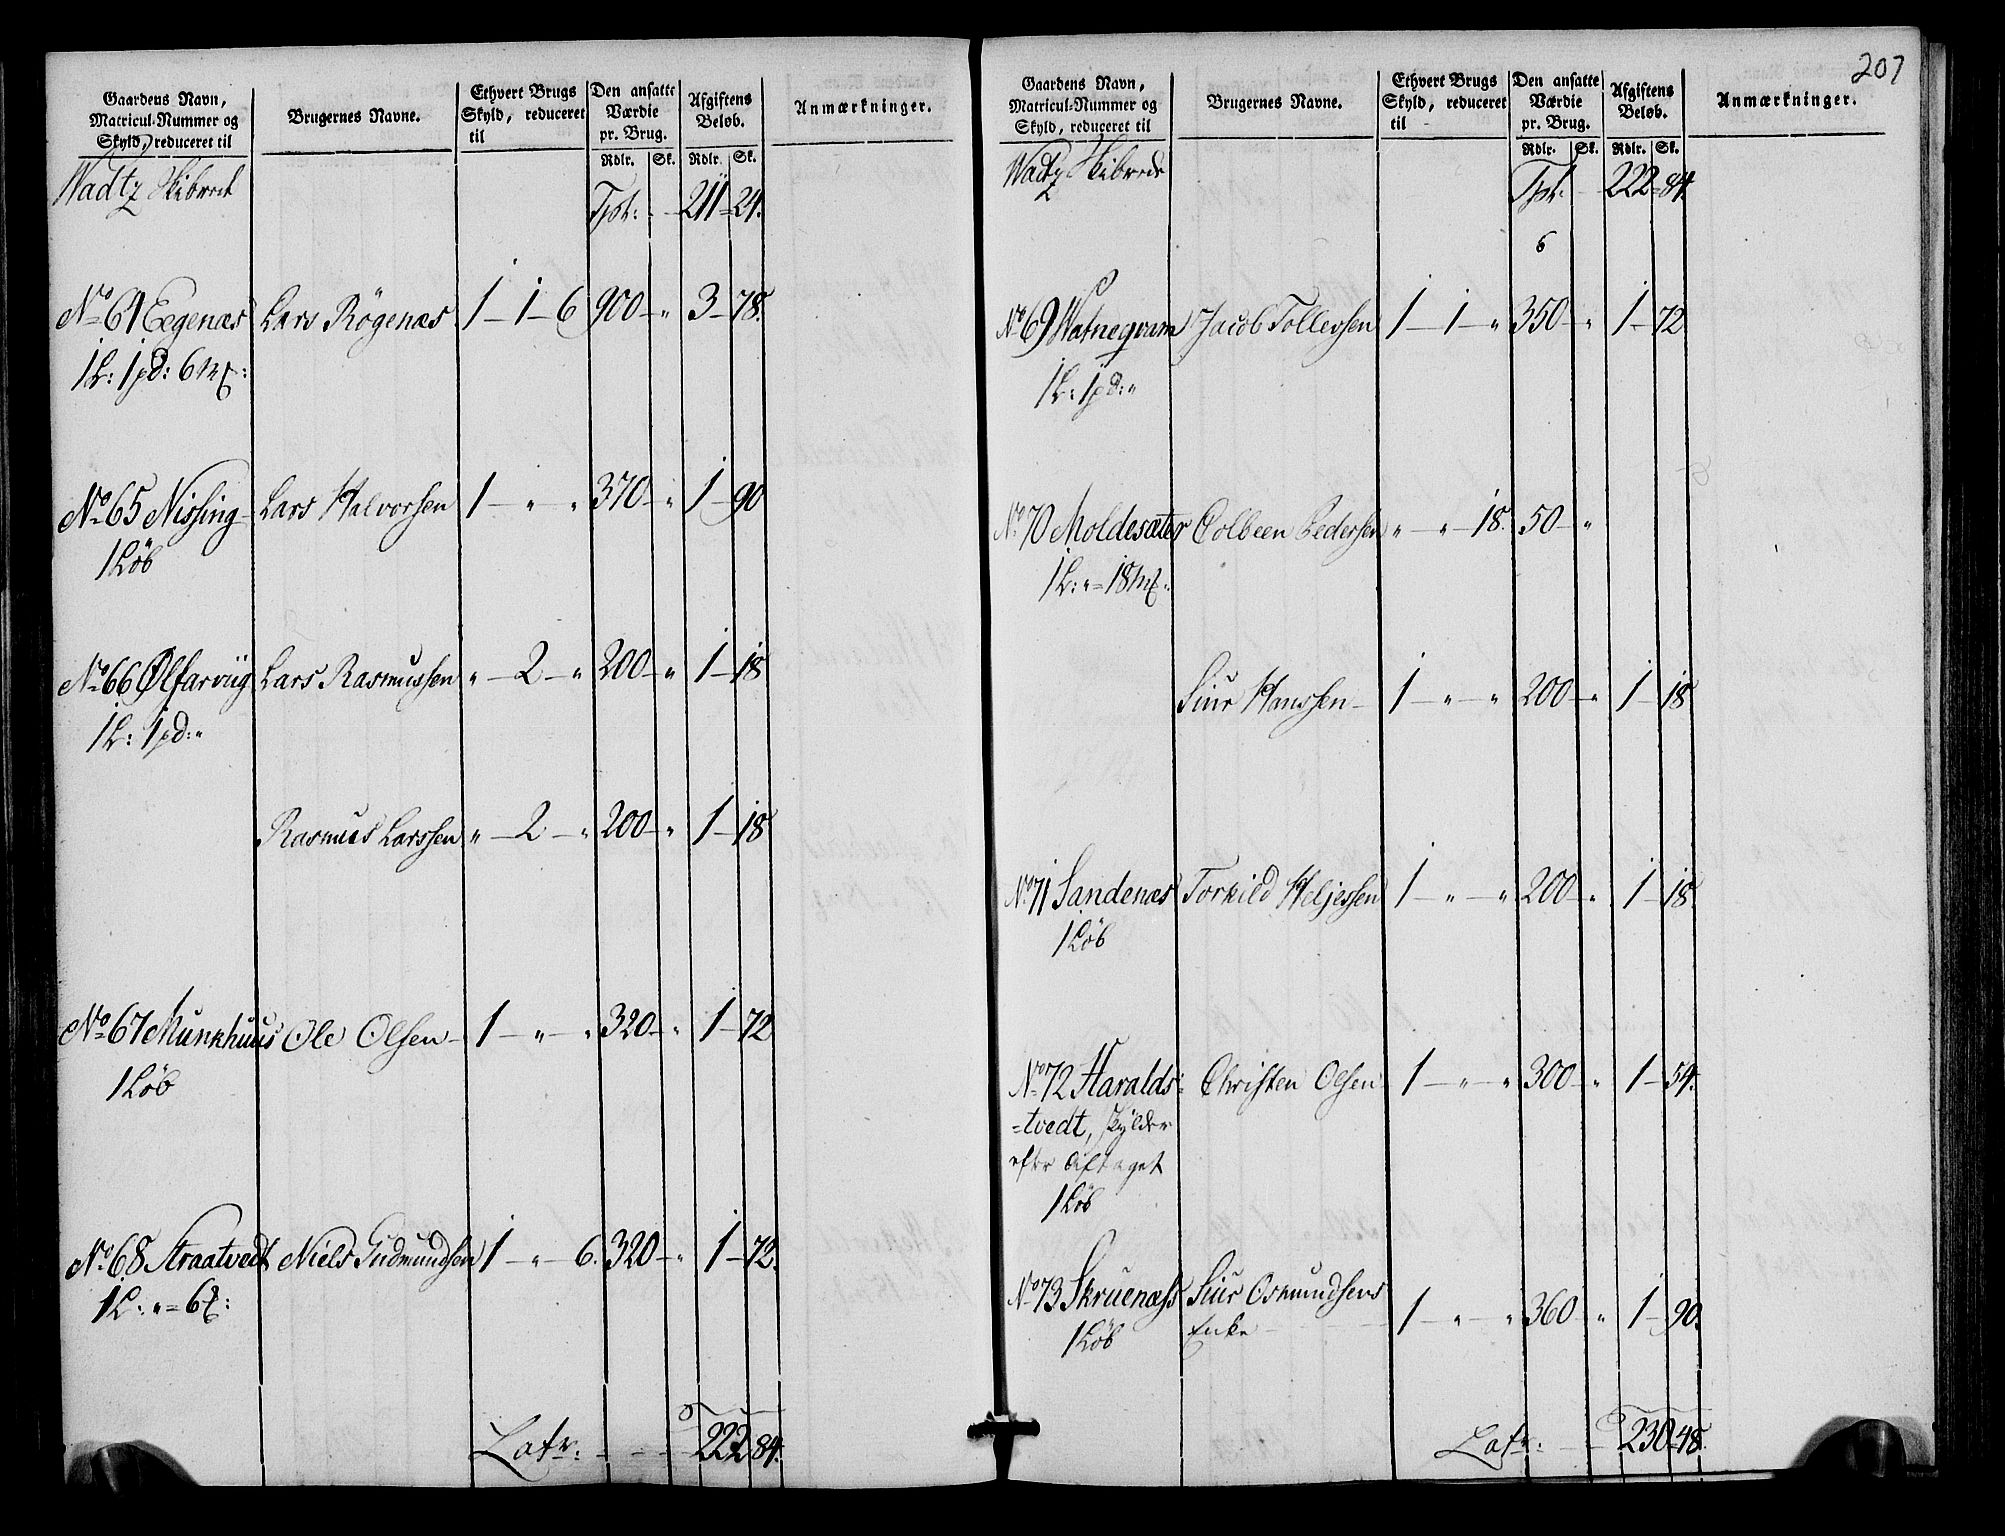 Gaardens Navn, Matricul-Nummer og Skyld, reduceret til
Brugernes Navne.
Ethvert Brugs Skyld, reduceret til
Den ansatte Værdie pr. Brug.
Afgiftens Beløb.
Anmærkninger.
Rdlr. Sk. Rdlr. Sk.
Wadtz Skibrede
Tpt: - 211 - 24.
No 64 Eegenæs Lars Rögenæs 1 - 1 - 6 900 - " 3 - 78.
1 L: 1 pd: 6 mk:
No 65 Nissing Lars Halvorsen 1 - " - " 370 - " 1 - 90
1 Löb
No 66 Ølfarviig Lars Rasmussen " - 2 - " 200 - " 1 - 18
1 L: 1 pd: "
Rasmus Larssen " - 2 - " 200 - " 1 - 18
No 67 Munkhuus Ole Olsen - 1 - " - " 320 - " 1 - 72
1 Löb
No 68 Straatvedt Niels Gudmundsen 1 - " - 6. 320 - " 1 - 72.
1 L: " = 6 mk:
Latr: - - - 222 84.
207
Gaardens Navn, Matricul-Nummer og Skyld, reduceret til
Brugernes Navne.
Ethvert Brugs Skyld, reduceret til
Den ansatte Værdie pr. Brug.
Afgiftens Beløb.
Anmærkninger.
Rdlr. Sk. Rdlr. Sk.
Wadtz Skibrede
Tpt: - 222 - 84.
6
No 69 Watneqvam Jacob Tollevsen 1 - 1 - " 350 - " 1 - 72
1 L: 1 pd: "
No 70 Moldesæter Colbeen Pedersen " - " - 18. 50 - "
1 L: " = 18 mk "
Siur Hanssen - 1 - " - " 200 - " 1 - 18
No 71 Sandenæs Torkild Heljessen 1 - " - " 200 - " 1 - 18.
1 Löb
No 72 Haralds- Christen Olsen 1 - " - " 300 - " 1 - 54.
=tvedt, skylder
efter Aftaget
1 Löb
No 73 Skruenæss Siur Osmundsens
Enke 1 - " - " 360 - " 1 - 90.
1 Löb
Latr: - - 230 - 48.